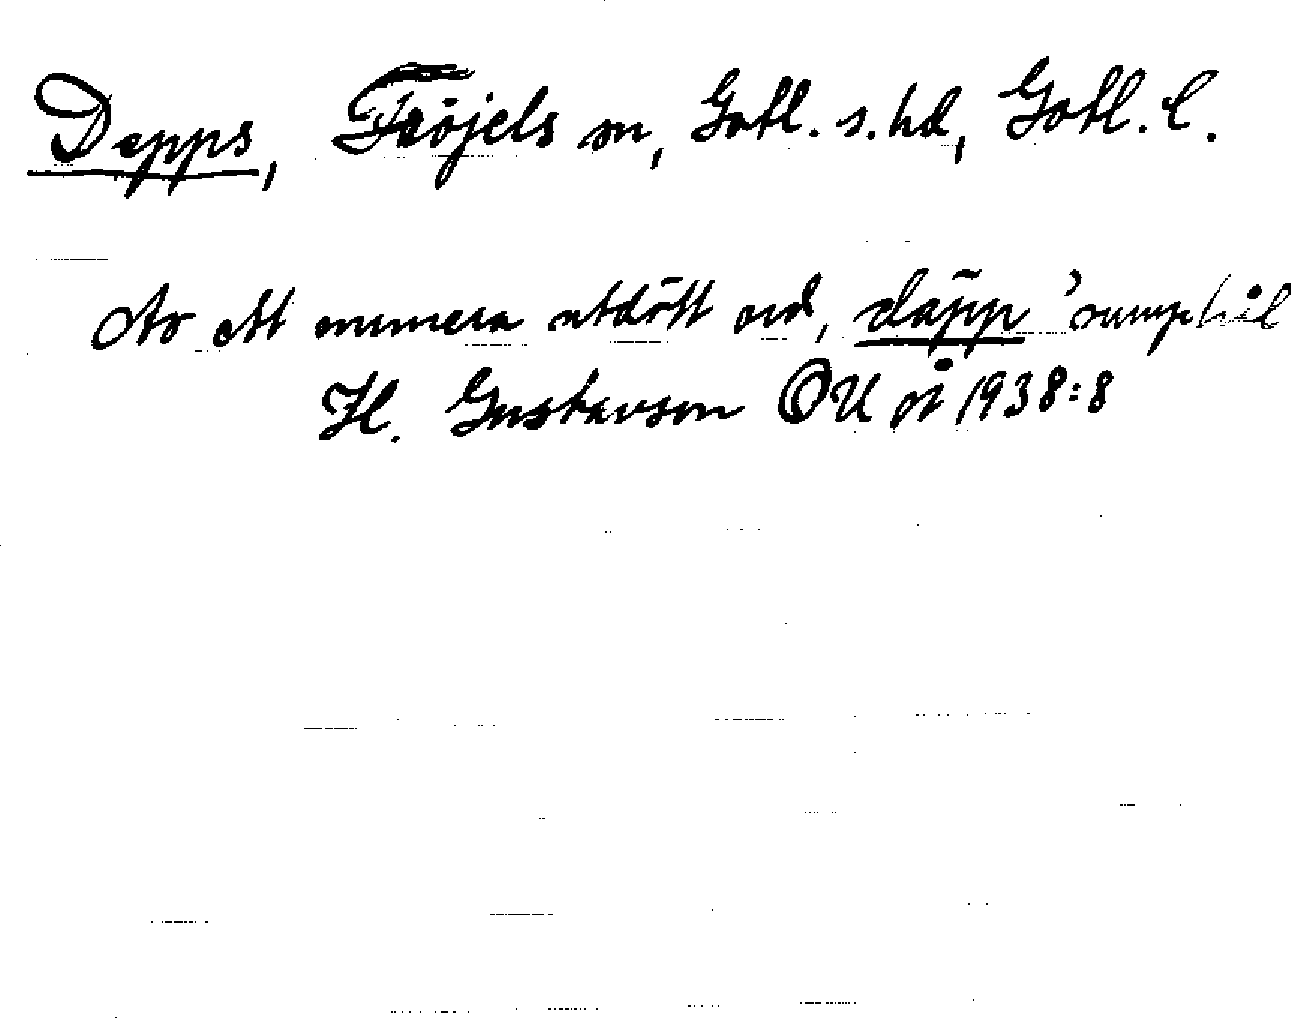 Depps, Fröjels sn, Gotl. s. hd, Gotl. l.
Av ett numera utdött ord, däpp 'sumphål
H. Gustavson OU på 1938:8